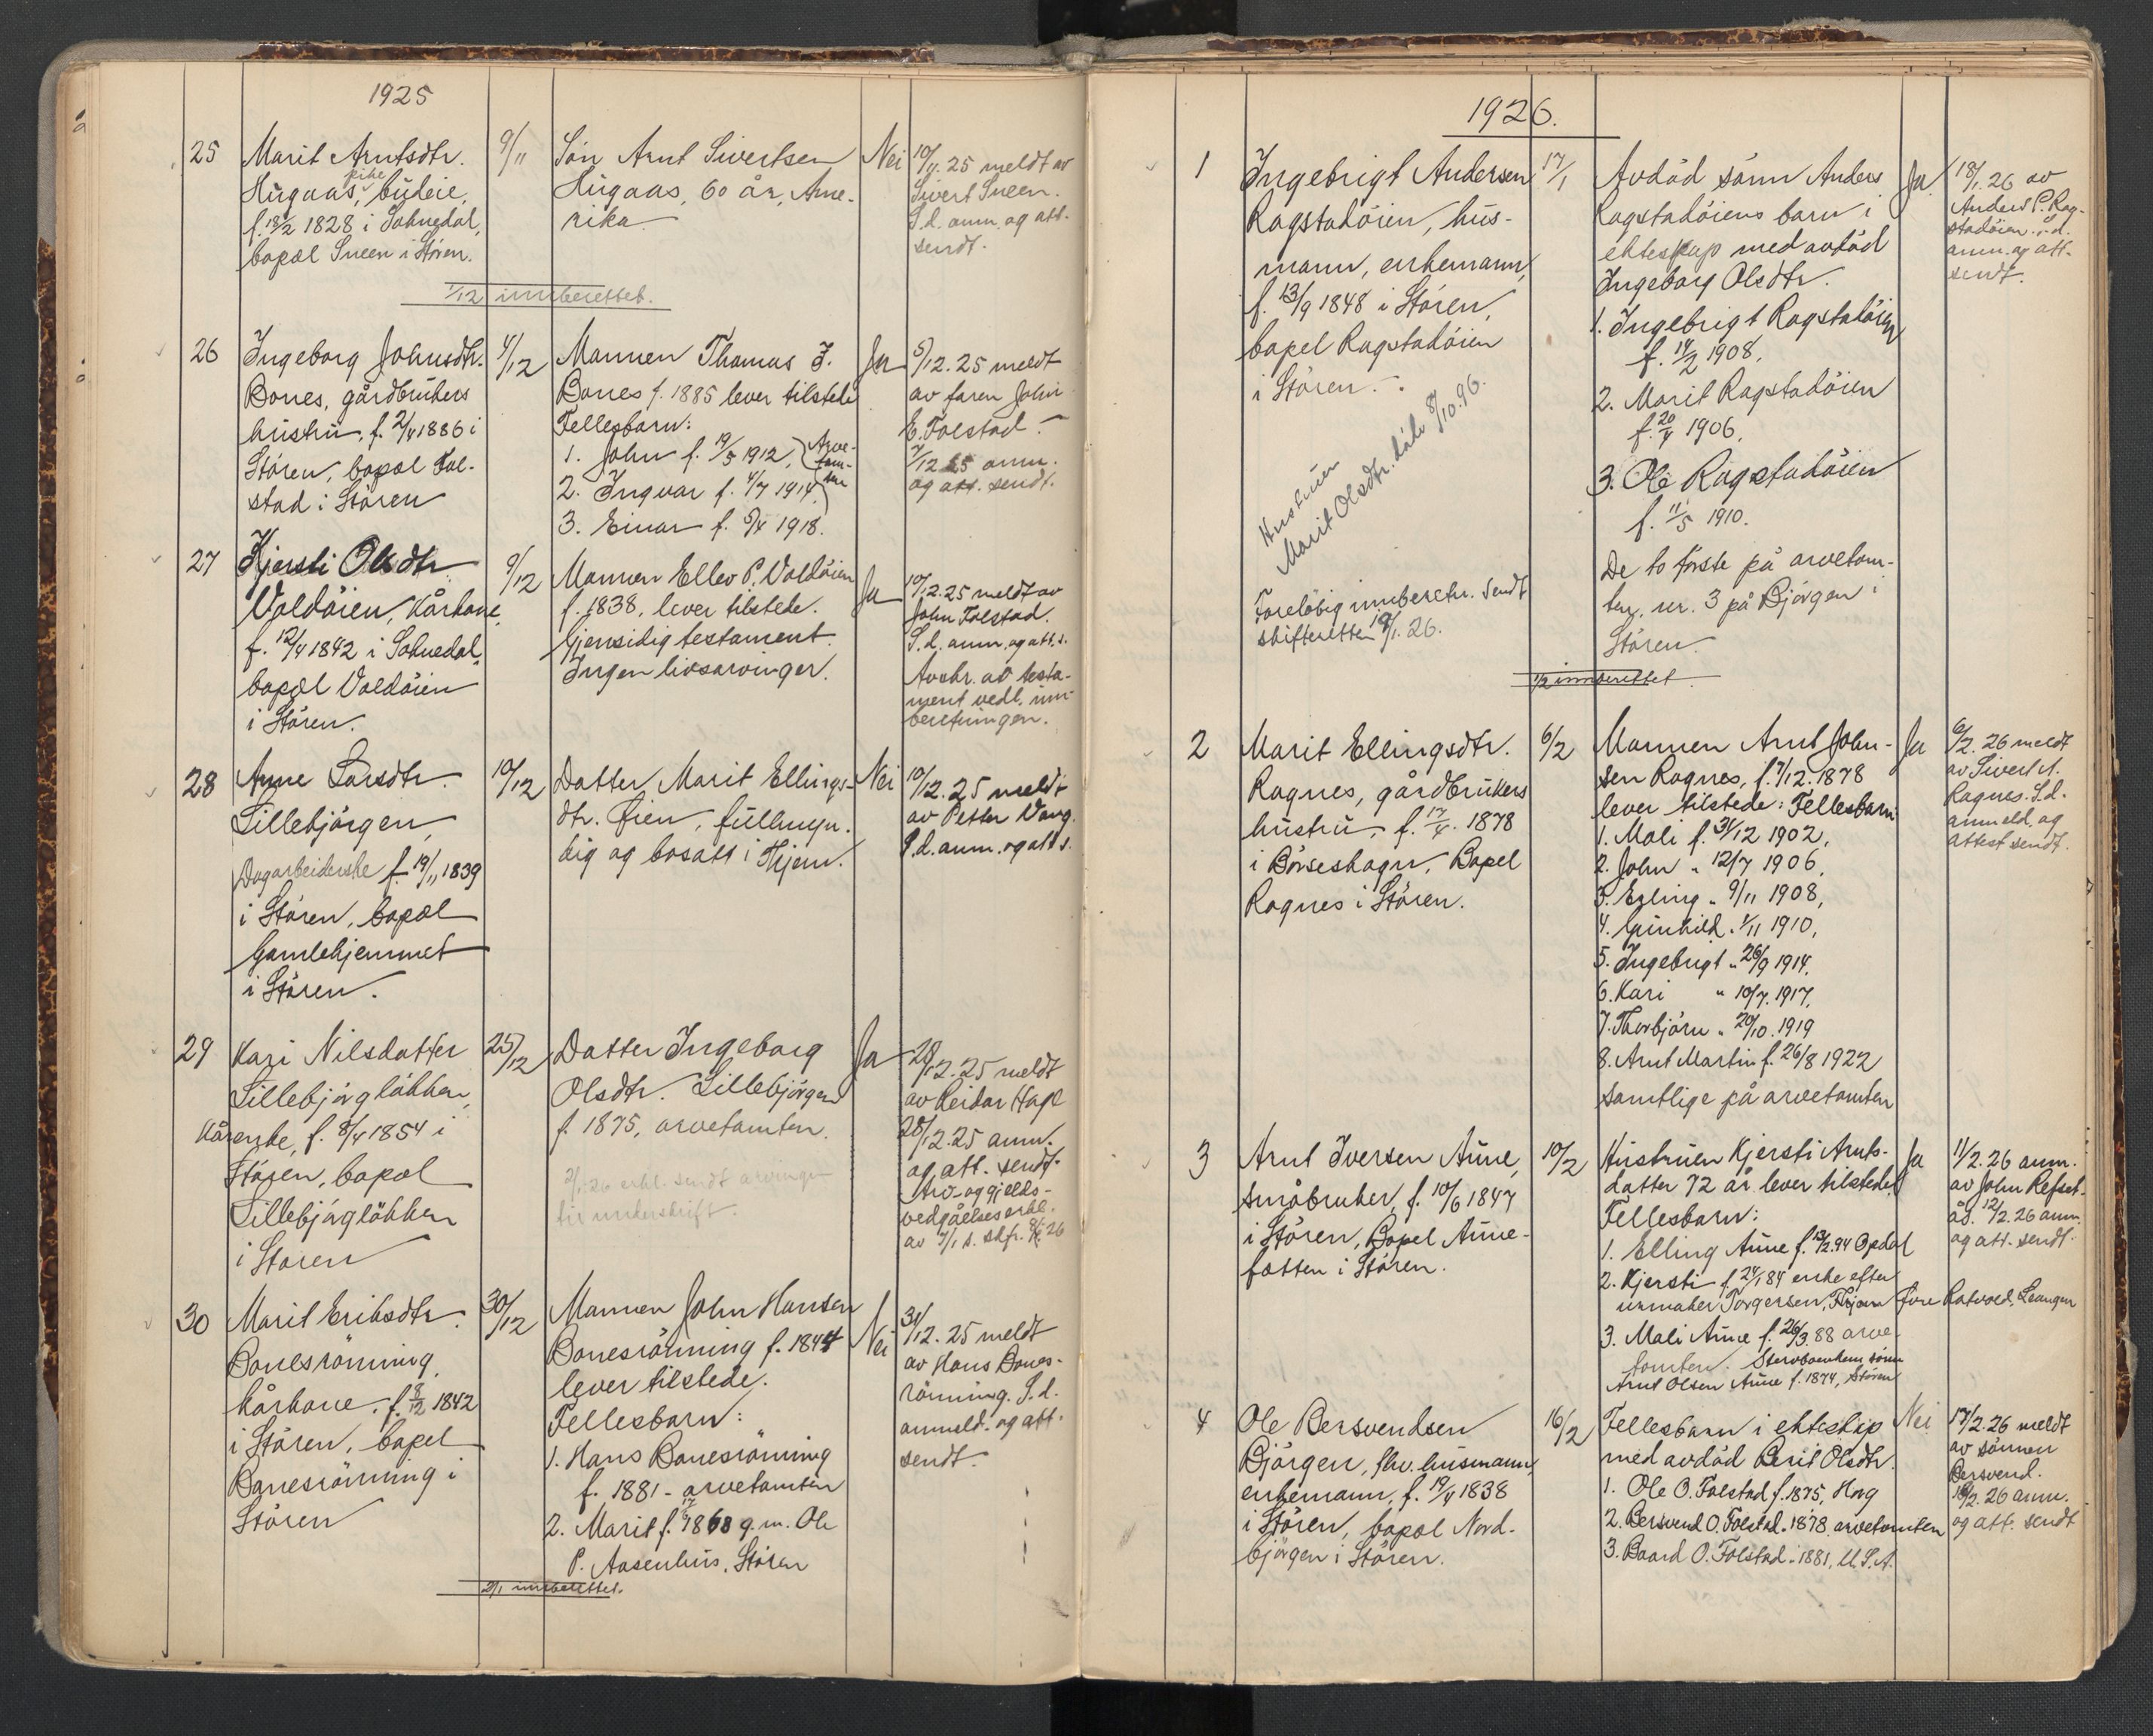 1925
25
Marit Arntsdtr.
Hügaas, pike büdeie,
f. 18/2 1828 i Soknedal,
bopæl Sneen i Stören.
9/11
Sön Arnt Sivertsen
Hügaas, 60 år, Ame-
rika
Nei
10/11. 25 meldt av
Sivert Sneen.
S.d. anm. og att.
sendt.
1/12 innberettet.
26
Ingeborg Johnsdtr.
Bones, gårdbrükers
hüstrü, f. 2/4 1886 i
Stören, bopæl Fol-
stad i Stören
4/12
Mannen Thomas J.
Bones f. 1885 lever tilstede
Fellesbarn:
1. John f. 19/5 1912,
2. Ingvar f. 4/7 1914,
Arve-
tom-
ten
3. Einar f. 5/4 1918.
Ja
5/12. 25 meldt
av faren John
E. Folstad.
7/12 25 anm.
og att. sendt.
27
Kjersti Olsdtr
Voldöien, kårkone,
f. 12/4 1842 i Soknedal,
bopæl Voldöien
i Stören.
9/12
Mannen Ellev P. Voldöien
f. 1838, lever tilstede.
Gjensidig testament.
Ingen livsarvinger.
Ja
10/12. 25 meldt av
John Folstad.
S.d. anm. og att. s.
Avskr. av testa-
ment vedl. inn-
beretningen.
28
Anne Larsdtr.
Lillebjörgen,
Dagarbeiderske f. 19/11 1839
i Stören, bopæl
Gamlehjemmet
i Stören.
10/12
Datter Marit Ellings-
dtr. Öien, füllmyn-
dig og bosatt i Hjem.
Nei
10/12. 25 meldt
av Petter Vang.
S.d. anm. og att s.
29
Kari Nilsdatter
Lillebjörglökken,
Kårenke, f. 8/4 1854 i
Stören, bopæl
Lillebjörglökken
i Stören
25/12
Datter Ingeborg
Olsdtr. Lillebjörgen
f. 1875, arvetomten.
2/1 26 erkl. sendt arvingen
til underskrift.
Ja
28/12. 25 meldt
av Reidar Hage
28/12. 25 anm.
og att. sendt.
Arv- og gjelds-
vedgåelseserkl.
av 7/1 s. skfr. 8/1 26
30
Marit Eriksdtr.
Bonesrönning,
kårkone, f. 8/12 1842
i Stören, bopel
Bonesrönning i
Stören
30/12
Mannen John Hansen
Bonesrönning f. 1844
lever tilstede.
Fellesbarn:
1. Hans Bonesrönning
f. 1881 - arvetomten
2. Marit f. 1868 g. m. Ole
P. Aasenhüs, Stören
Nei
31/12. 25 meldt
av Hans Bones-
rönning. S.d.
anmeld. og att.
sendt.
2/1 innberettet.
1926.
1
Ingebrigt Andersen
Rogstadöien, hus-
mann, enkemann,
f. 13/9 1848 i Stören,
bopel Rogstadöien
i Stören.
Hustruen
Marit Olsdtr. döde 8/10.96.
Foreløbig innberetn. sendt
skifteretten 19/1. 26.
17/1
Avdöd sönn Anders
Rogstadöiens barn i
ekteskap med avdöd
Ingeborg Olsdtr.
1. Ingebrigt Rogstadöien
f. 14/2 1908,
2. Marit Rogstadöien
f. 20/4 1906,
3. Ole Rogstadöien
f. 11/5 1910.
De to förste på arvetom-
ten, nr. 3 på Bjørgen i
Stören.
Ja
18/1. 26 av
Anders P. Rog-
stadöien. s.d.
anm. og att.
sendt.
1/2 innberettet
2
Marit Ellingsdtr.
Rognes, gårdbrükers
hüstrü, f. 17/4. 1878
i Börseskogn, Bopel
Rognes i Stören.
6/2
Mannen Arnt John-
sen Rognes, f. 7/12. 1878
lever tilstede: Fellesbarn
1. Mali f. 31/12 1902,
2. John " 12/7 1906,
3. Erling " 9/11 1908,
4. Günhild " 1/11 1910,
5. Ingebrigt " 26/9 1914,
6. Kari " 10/7. 1917,
7. Thorbjörn " 20/10. 1919
8. Arnt Martin f. 26/8 1922
Samtlige på arvetomten
Ja
6/2. 26 meldt
av Sivert A.
Rognes. S.d.
anmeld. og
attest sendt.
3
Arnt Iversen Aüne,
småbruker, f. 10/6 1847
i Stören, Bopel Aüne-
fotten i Stören.
10/2
Hüstrüen Kjersti Arnts-
datter 72 år lever tilstede
Fellesbarn:
1. Elling Aüne f. 13/2.94 Opdal
2. Kjersti f. 24/1 84 enke efter
urmaker Torgersen, Övre Rotvold, Leangen
3. Mali Aüne f. 26/3 88 arve-
tomten. Stervboenkens sönn
Arnt Olsen Aüne f. 1874, Stören
Ja
11/2. 26 anm.
av John Refset-
ås. 12/2. 26 anm.
og att. sendt.
4
Ole Bersvendsen
Björgen, fhv. hüsmann,
enkemann, f. 19/4 1838
i Stören, bopæl Nord-
björgen i Stören.
16/2
Fellesbarn i ekteskap
med avdöd Berit Olsdtr.
1. Ole O. Folstad f. 1875, Horg
2. Bersvend O. Folstad " 1878, arvetomten
3. Baard O. Folstad " 1881, U.S.A.
Nei
17/2. 26 meldt
av sönnen
Bersvend.
18/2. 26 anm.
og att. sendt